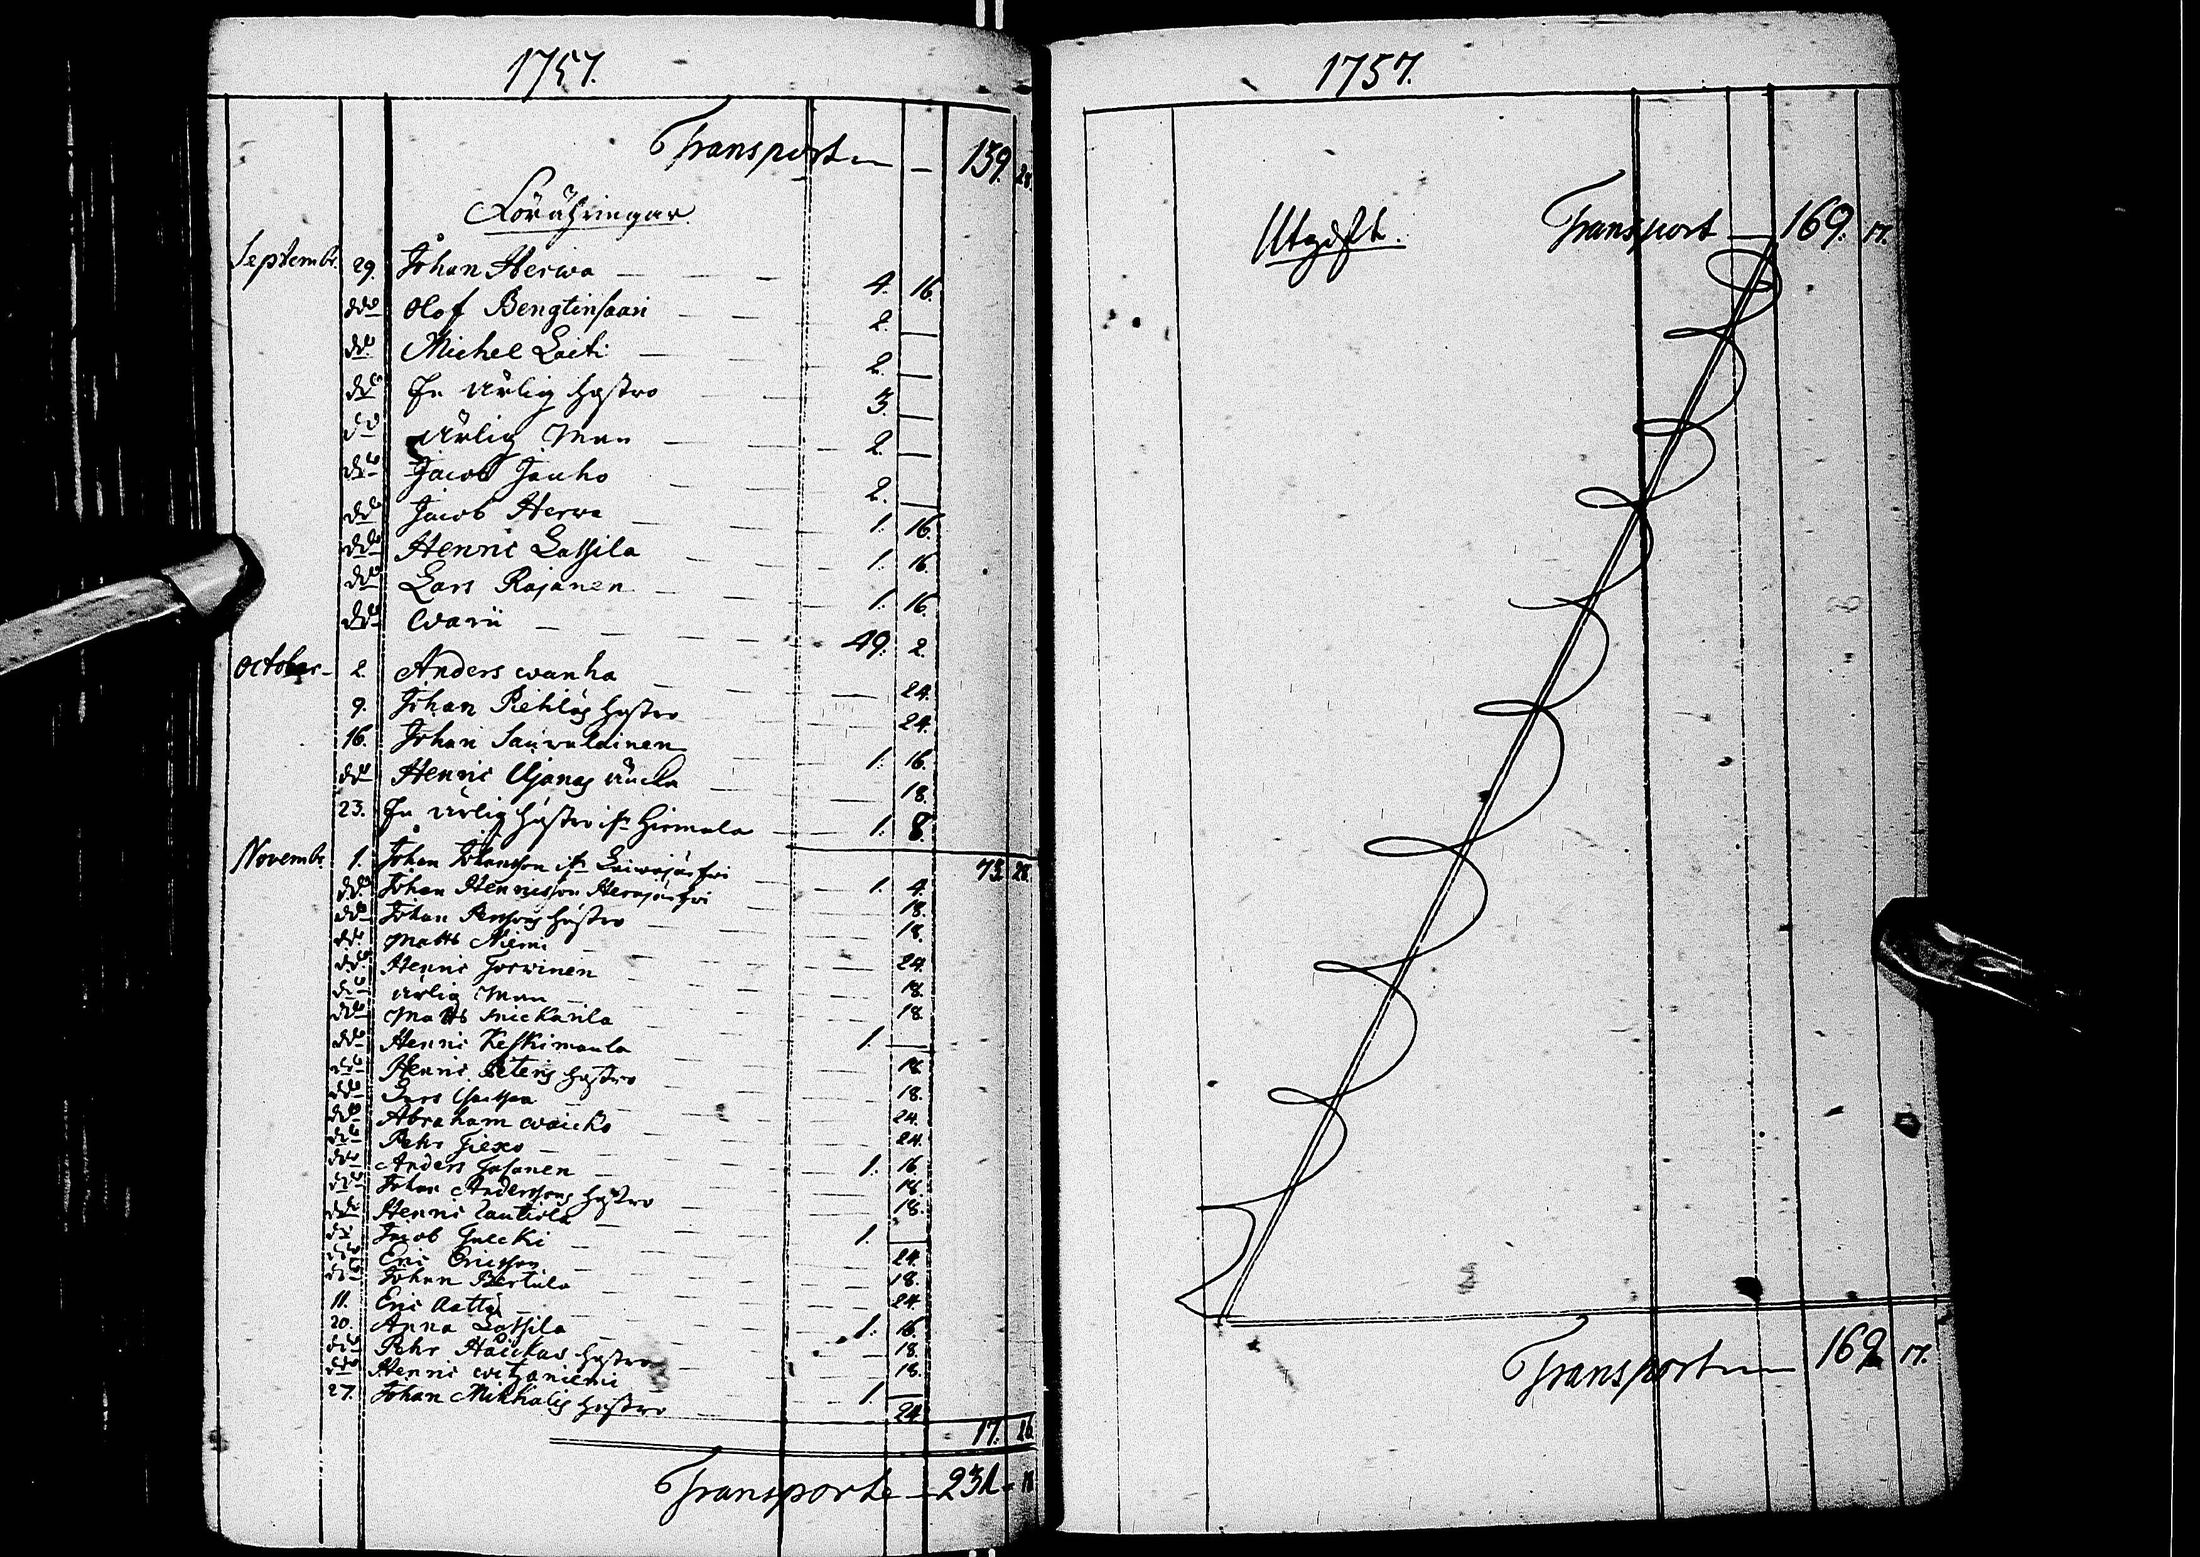 1757.
Transport — 139. 28.
Förähringar
Septembr. 29. Johan Herwa 4. 16.
dto Olof Bengtinsaari 2. —
dto Michel Laiti 2. —
dto En ärlig hustro 3. —
dto ärlig Man 2. —
dto Jacob Jauho 2. —
dto Jacob Herwa 1. 16.
dto Henric Lassila 1. 16.
dto Lars Rajanen 1. 16.
dto 49. 2.
October 2. Anders wanha 24.
9. Johan Pehläs hustro 24.
16. Johan Sauwalainen 1. 16.
dto Henric änckia 18.
23. En ärlig hustro ifr. Hirmula 1. 8.
73. 28.
Novembr. 1. Johan Johansson ifr. 1. 4.
dto Johan Henricsson Herajärfwi 18.
dto Johan hustro 18.
dto Matts Niemi 24.
dto Henric Torwinen 18.
dto ärlig Man 18.
dto Matts Mickarila 1. —
dto Henric Keskimaula 18.
dto Henric Peters hustro 18.
dto Lars 24.
dto Abraham waicko 24.
dto Pehr 1. 16.
dto Anders 18.
dto Johan Anderssons hustro 18.
dto Henric 1. —
dto Jacob 24.
dto Eric Ericsson 18.
dto Johan Pertula 24.
11. Eric 1. 16.
20. Anna Lassila 18.
dto Pehr hustro 18.
dto Henric witzaniemi 1. —
27. Johan Mikkalis hustro 24.
17. 26.
Transporte — 231. 18.
1757.
Utgift. Transport — 169. 17.
Transport 169. 17.